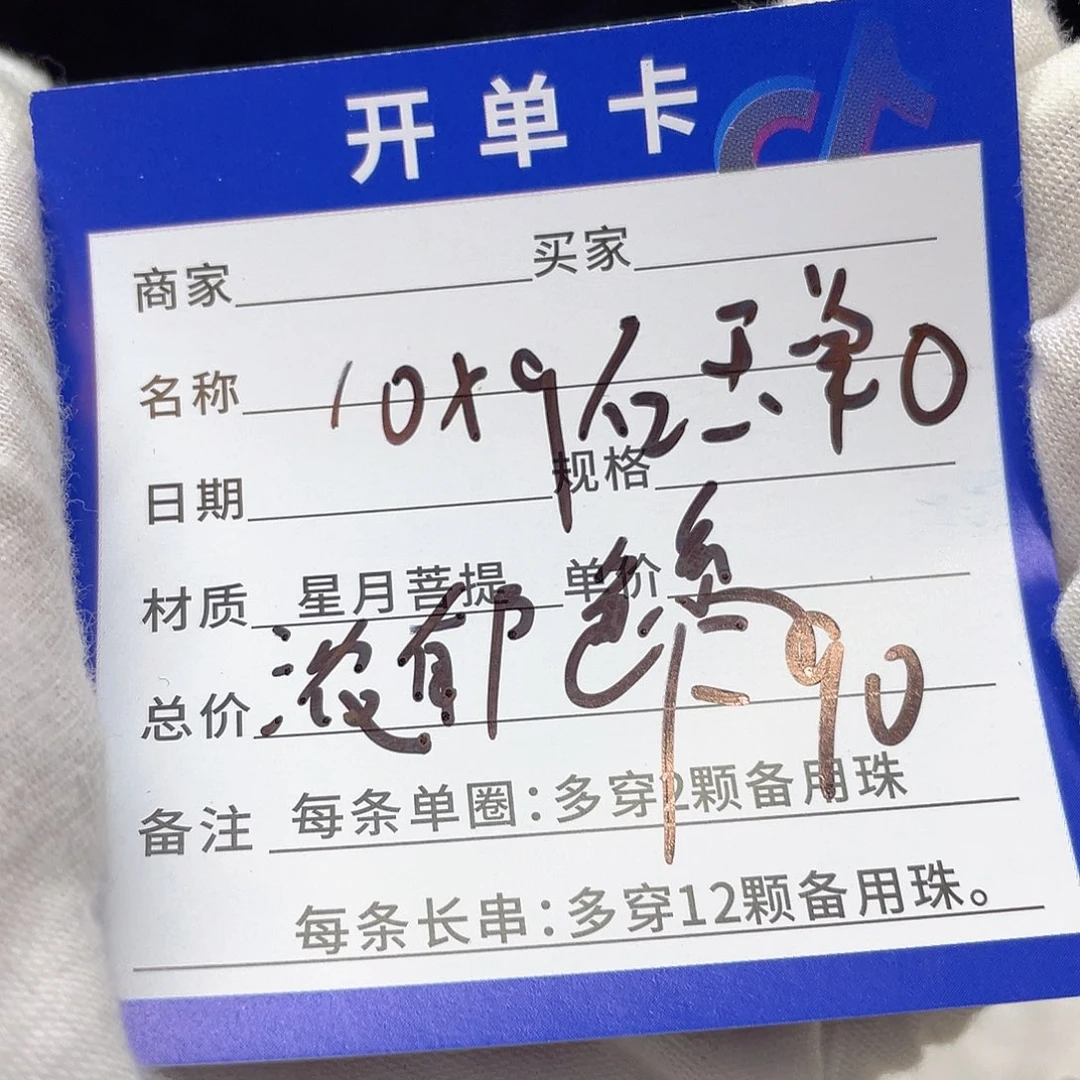 开单卡
商家 买家
名称 10x9 单0
日期 规格
材质 星月菩提 单价
浓郁色系
总价 90
备注 每条单圈：多穿2颗备用珠
每条长串：多穿12颗备用珠。